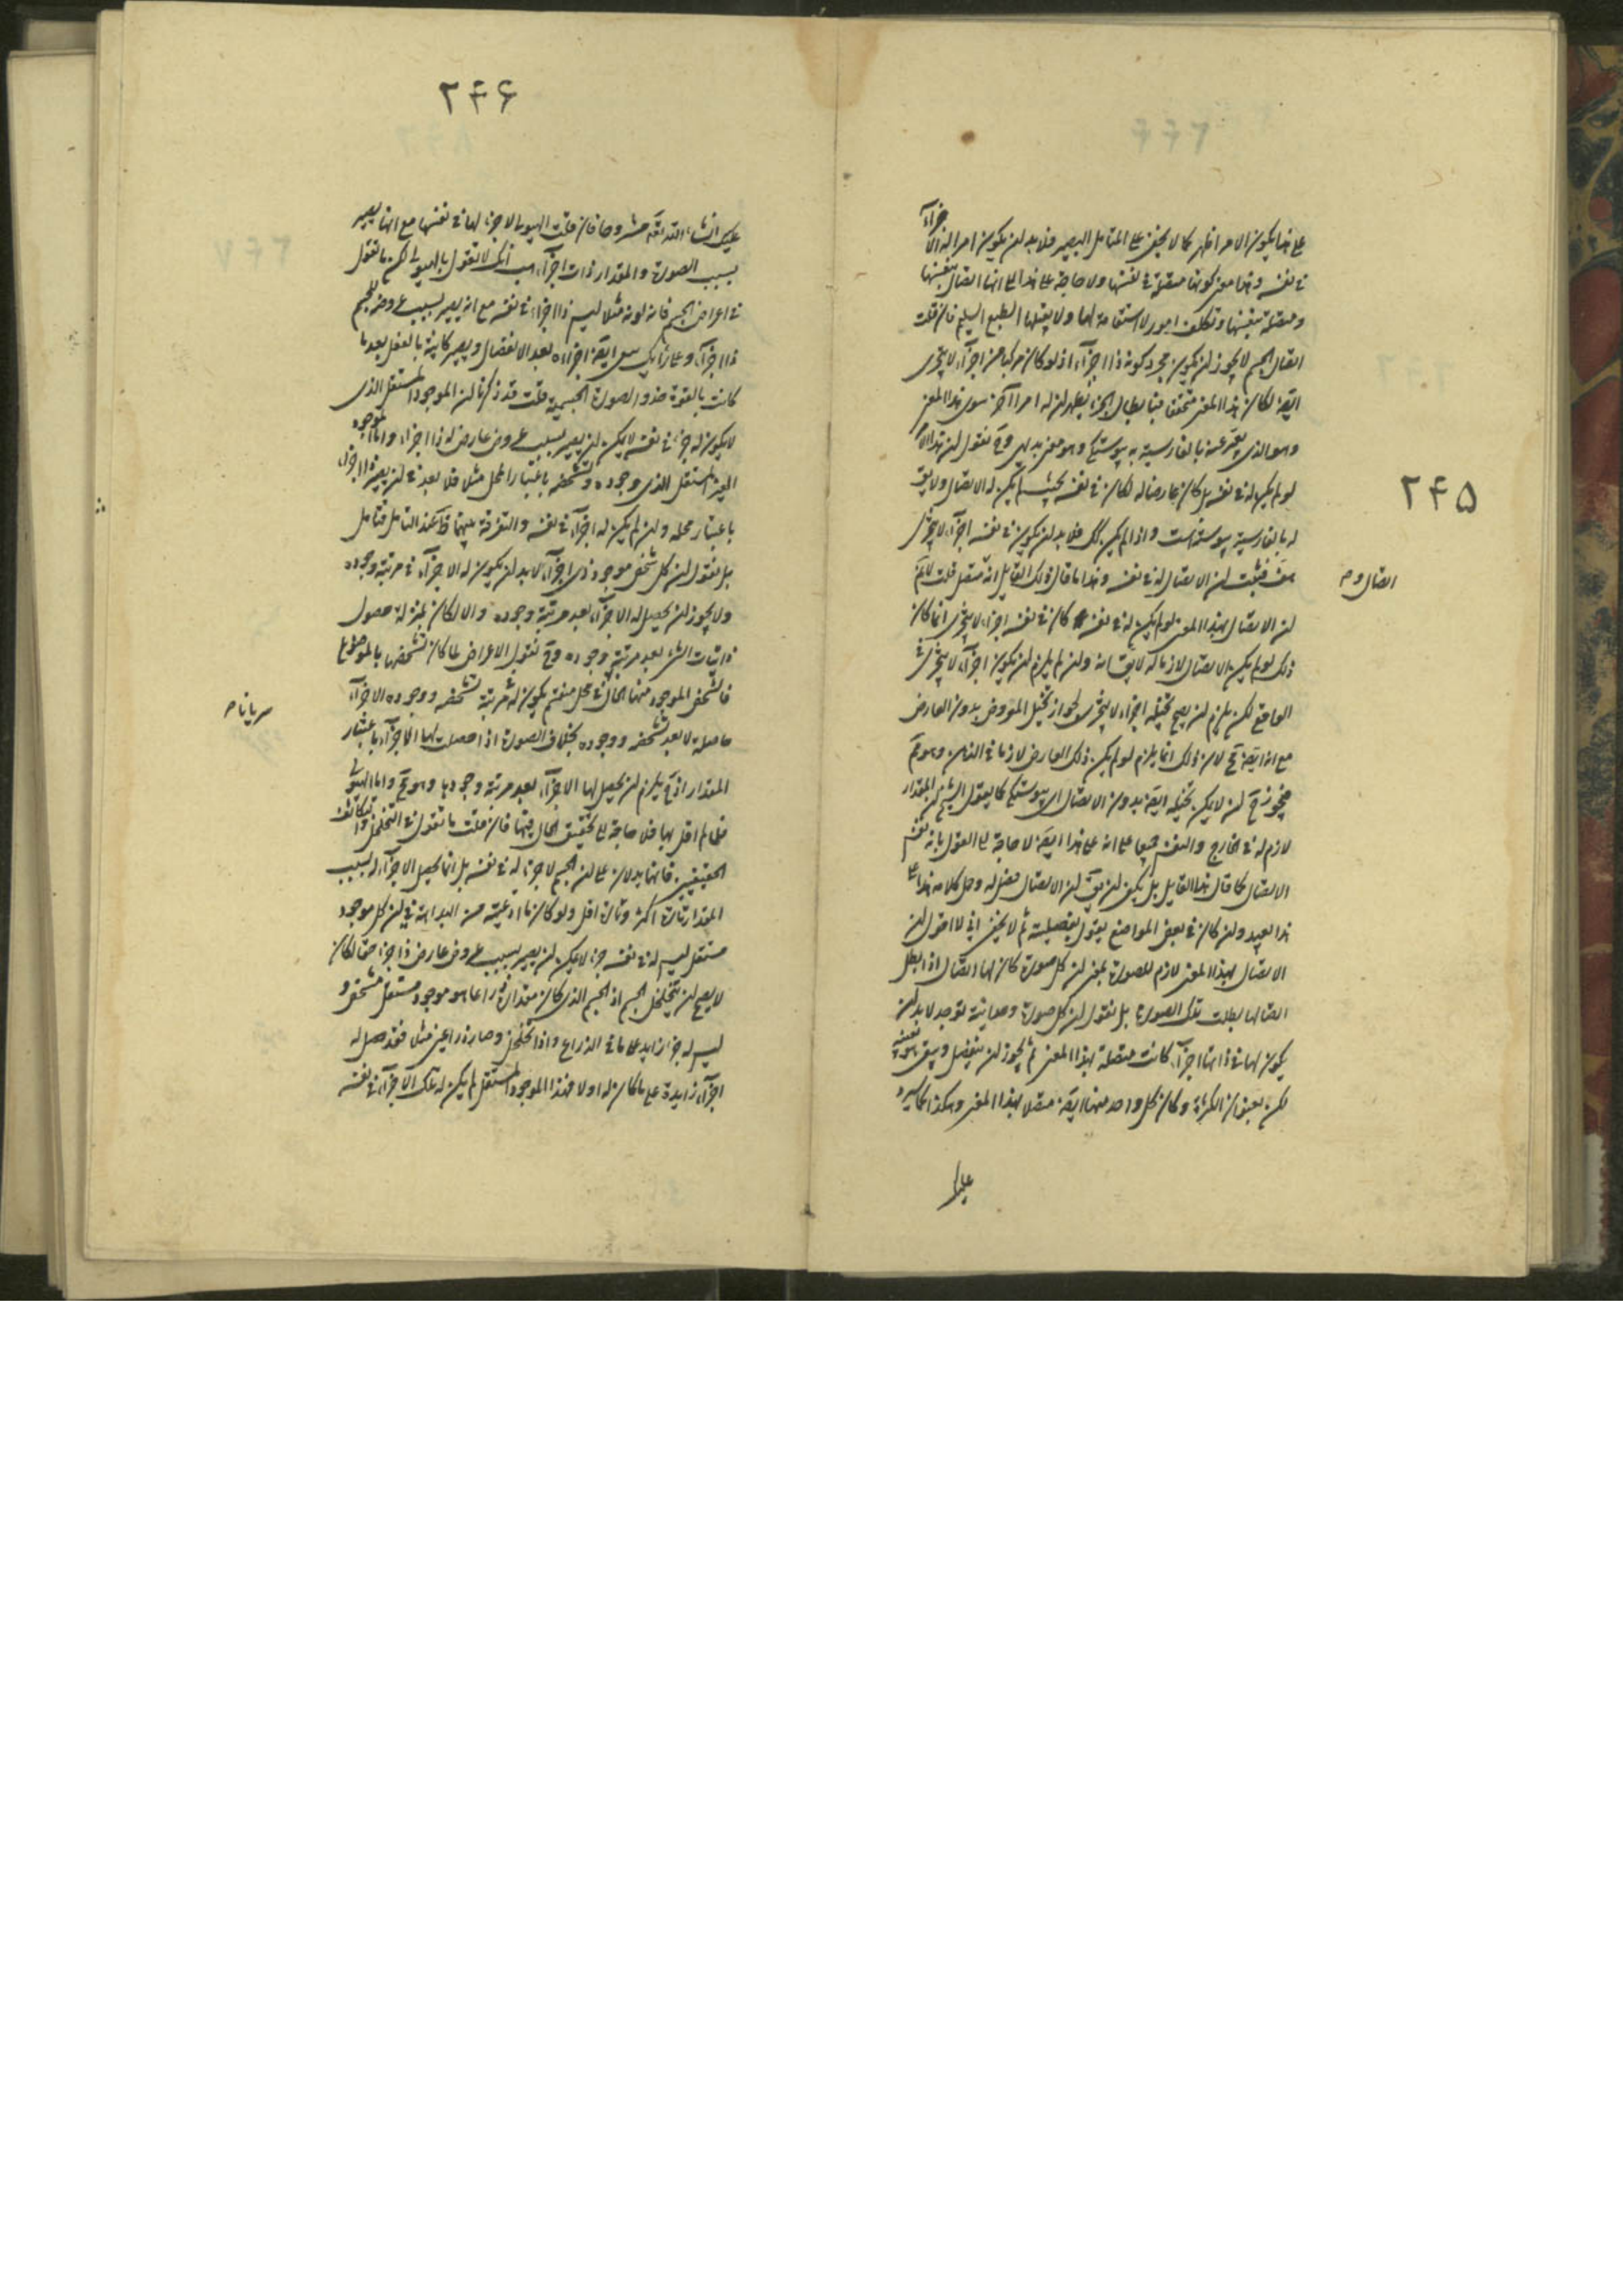 ۲۴۵
على هذا يكون الامر اظهر كما لا يخفى على المتامل البصير فلا بد لن يكون امرا له الاجزآء
في نفسه وهذا معنى كونها متصلة في نفسها ولا حاجة على هذا الى انها اتصال بنفسها
ومتصلة بنفسها وتكلف امور لا استقامة لها ولا يقبلها الطبع السليم فان قلت
اتصال الجسم لا يجوز لن يكون مجرد كونه ذا اجزآء اذ لو كان مركبا من اجزآء لا يتجزى
ايضا لكان هذا المعنى متحققا فبابطال الجزء يظهر لن له امرا آخر سوى هذا المعنى
وهو الذى يعبر عنه بالفارسية به پيوستكى وهو معنى بديهى وح نقول لن هذا الامر
لو لم يكن له في نفسه بل كان عارضا له لكان في نفسه بحيث لم يكن له الاتصال ولا يق
له بالفارسية پيوسته است واذا لم يكن كك فلا بد لن يكون في نفسه اجزآء لا يتجزى
هف فثبت لن الاتصال له في نفسه وهذا ما قال ذلك القايل انه متصل قلت لا نم
لن الاتصال بهذا المعنى لو لم يكن له في نفسه كان في نفسه اجزاء لا يتجزى انما كان
ذلك لو لم يكن الاتصال لازما له لا يق انه ولن لم يلزم لن يكون اجزآء لا يتجزى في
الواقع لكن يلزم لن يصح تخيله اجزاء لا يتجزى لجواز تخيل المعروض بدون العارض
مع انه ايضا مح لان ذلك انما يلزم لو لم يكن ذلك العارض لازما في الذهن وهو مم
فيجوز ح لن لا يمكن تخيله ايضا بدون الاتصال اى پيوستكى كما يقول الشيخ لن المقدار
لازم له في الخارج والنفس جميعا على انه على هذا ايضا لا حاجة الى القول بانه نفس
الاتصال كما قال هذا القايل بل يكفى لن يق لن الاتصال فصل له وحمل كلامه هذا على
هذا بعيد ولن كان في بعض المواضع يقول بفصليته ثم لا يخفى انى لا اقول لن
الاتصال بهذا المعنى لازم للصورة بمعنى لن كل صورة كان لها اتصال اذا بطل
اتصالها بطلت تلك الصورة بل نقول لن كل صورة وحدانية توجد لا بد لن
يكون لها في ذاتها اجزآء كانت متصلة بهذا المعنى ثم يجوز لن ينفصل ويبقى هو بنفسه
لكن بعنوان الكثرة وكان كل واحد منها ايضا متصلا بهذا المعنى وهكذا كما سيرد
اتصال وم
عليك
۲۴۶
عليك انشاء الله تعه مشروحا فان قلت الهيولى لا جزء لها في نفسها مع انها يصير
بسبب الصورة والمقدار ذات اجزآء هب انك لا تقول بالهيولى لكن ما تقول
في اعراض الجسم فانه لونه مثلا ليس ذا اجزاء في نفسه مع انه يصير بسبب عروضه للجسم
ذا اجزآء اجزاءه بعد الانفصال ويصير كاينة بالفعل بعد ما
كانت بالقوة حذو الصورة الجسمية قلت قد ذكرنا لن الموجود المستقل الذى
لا يكون له جزء في نفسه لا يمكن لن يصير بسبب عروض عارض له ذا اجزاء واما الموجود
الغير المستقل الذى وجوده وتشخصه باعتبار المحل مثلا فلا بعد في لن يصير ذا اجزاء
باعتبار محله ولن لم يكن له اجزآء في نفسه والتفرقة بينهما ظ عند التامل فتامل
بل نقول لن كل شخص موجود ذى اجزآء لا بد لن يكون له الاجزآء في مرتبة وجوده
ولا يجوز لن يحصل له الاجزآء بعد مرتبة وجوده والا لكان بمنزلة حصول
ذاتيات الشئ بعد مرتبة وجوده وح نقول الاعراض لما كان تشخصها بالموضوع
فالشخص الموجود منها الحال في محل منقسم يكون له في مرتبة تشخصه ووجوده الاجزآء
حاصلة لا بعد تشخصه ووجوده بخلاف الصورة اذا حصلت لها الاجزآء باعتبار
المقدار اذ ح يلزم لن يحصل لها الاجزآء بعد مرتبة وجودها وهو مح واما الهيولى
فلما لم اقل بها فلا حاجة الى تحقيق الحال فيها فان قلت ما تقول في التخلخل والتكاثف
الحقيقيين فانهما يدلان على لن الجسم لا جزء له في نفسه بل انما يحصل الاجزآء له بسبب
المقدار تارة اكثر وتارة اقل ولو كان ما ادعيته من البداهة في لن كل موجود
مستقل ليس له في نفسه جزء لا يمكن لن يصير بسبب عروض عارض ذا جزء حقا لكان
لا يصح لن يتخلخل الجسم اذ الجسم الذى كان مقداره ذراعا هو موجود مستقل متشخص و
ليس له جزء زايد على ما في الذراع واذا تخلخل وصار ذراعين مثلا فقد حصل له
اجزآء زايدة على ما كان له اولا فهذا الموجود المستقل لم يكن له تلك الاجزآء في نفسه
سريانا م